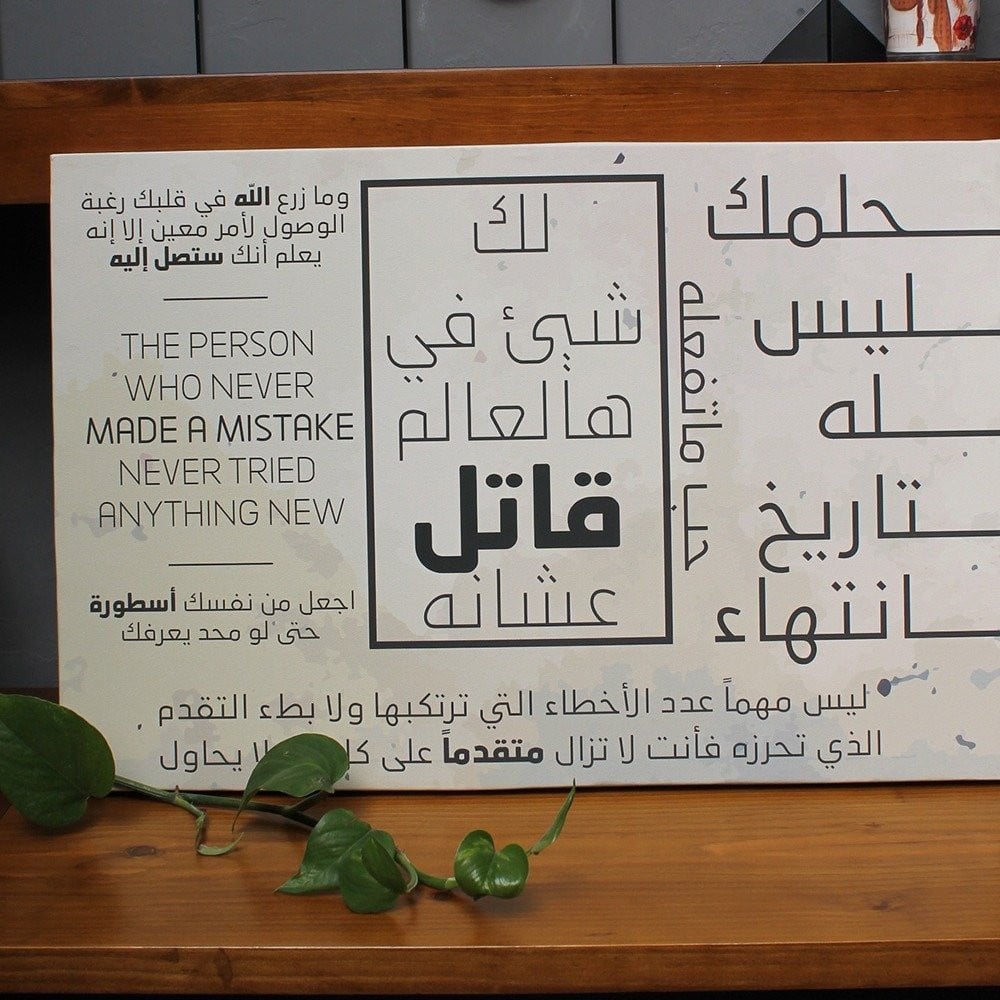 حلمك
ليس
له
تاريخ
انتهاء
حب ماتفعله
لك
شيئ في
هالعالم
قاتل
عشانه
وما زرع الله في قلبك رغبة
الوصول لأمر معين إلا إنه
يعلم أنك ستصل إليه
THE PERSON
WHO NEVER
MADE A MISTAKE
NEVER TRIED
ANYTHING NEW
اجعل من نفسك أسطورة
حتى لو محد يعرفك
ليس مهماً عدد الأخطاء التي ترتكبها ولا بطء التقدم
الذي تحرزه فأنت لا تزال متقدماً على لا يحاول